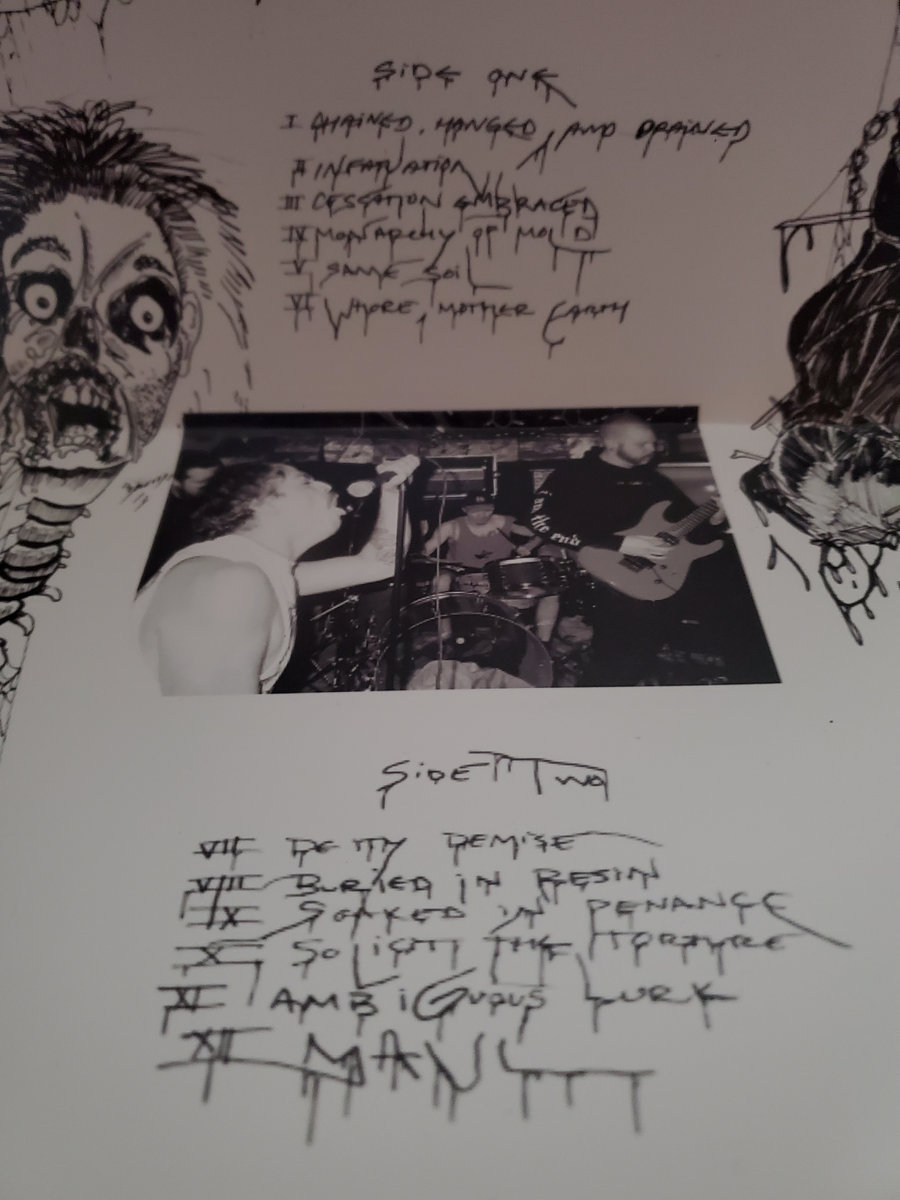 SIDE ONE
I CHAINED, HANGED, AND DRAINED
II INFATUATION
III CESSATION EMBRACED
IV MONARCHY OF MOLD
V SAME SOIL
VI WHORE, MOTHER EARTH
i am the end
SIDE TWO
VII DEITY DEMISE
VIII BURIED IN RESIN
IX SOAKED IN PENANCE
X SOLICIT THE TORTURE
XI AMBIGUOUS LURK
XII